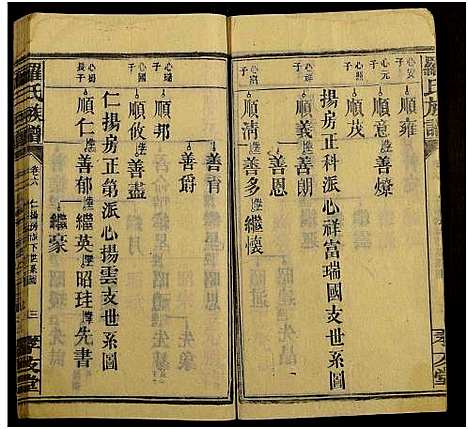 羅氏族譜
心安子
順雍
心元子
順意
善燦
心縣子
順茂
揚房正科派心祥富瑞國支世系圖
心祥子
順義
善朗
善恩
心富子
順清
善多
繼懷
善育
善爵
心瑞子
順邦
心國子
順攸
善盡
仁揚房正第派心揚雲支世系圖
心揚長子
順仁
善郁
繼英
昭珪
先書
繼豪
羅氏族譜
卷六
仁揚房順下世系圖
三